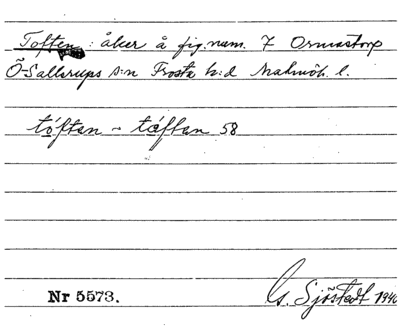 Toften : åker å fig. nam. 7 Ormastorp
Ö-Sallerups s:n Frosta h:d Malmöh. l.
tóftan ~ táftan 58
Nr 5573.
G. Sjöstedt 1940